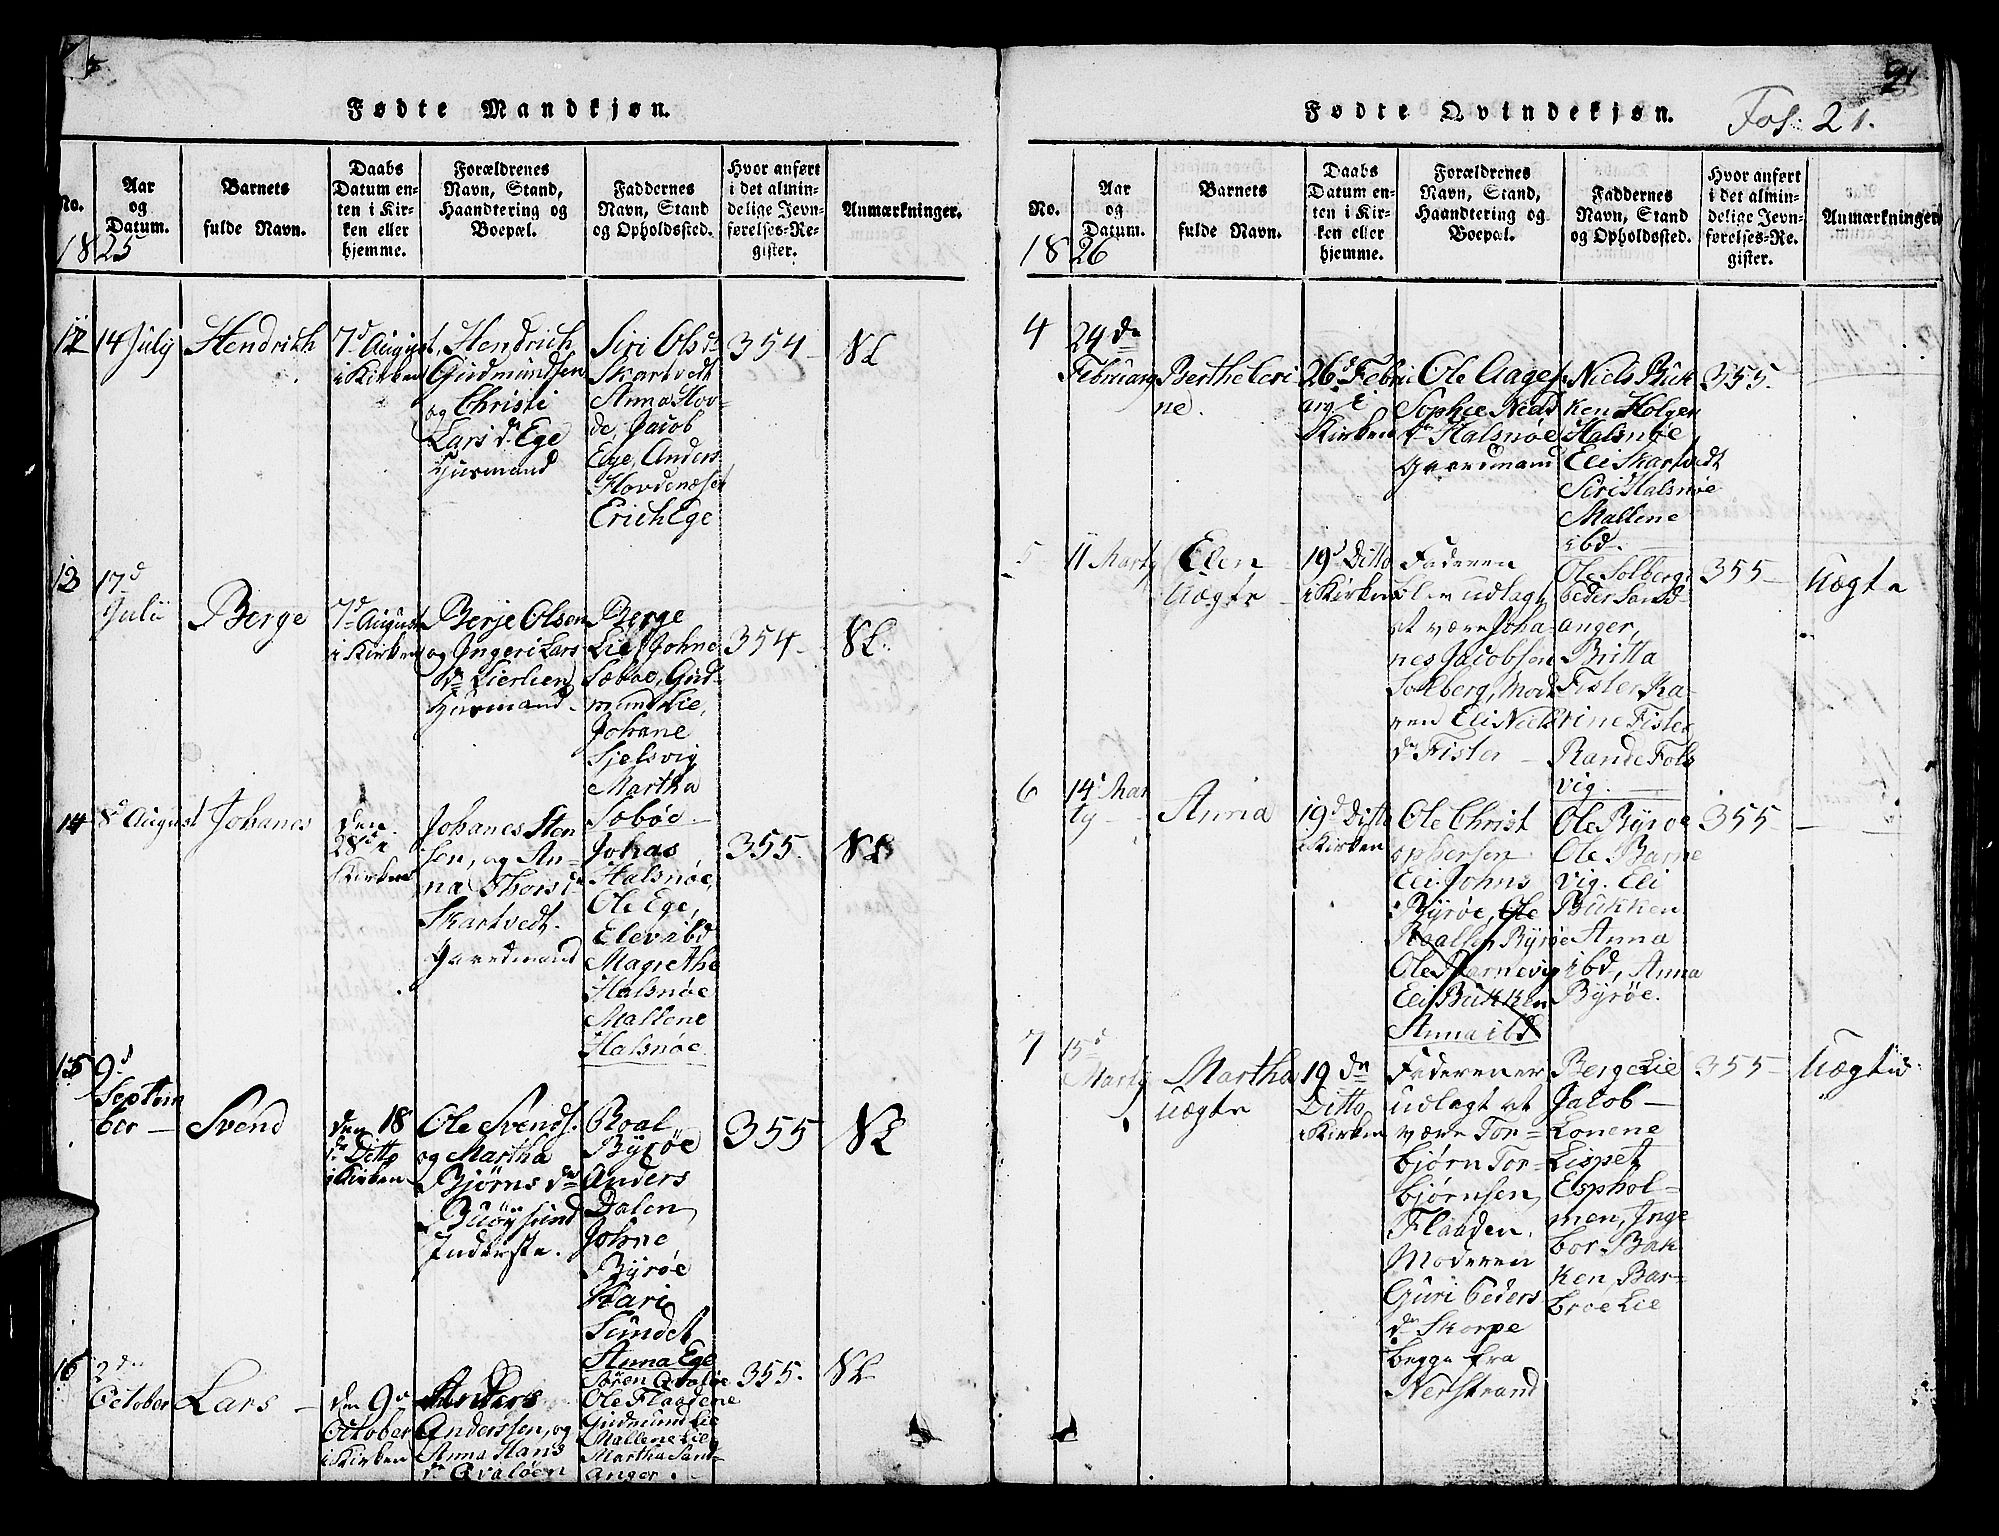 Fødte Mandkjøn.
No.
Aar
og
Datum.
Barnets
fulde Navn.
Daabs
Datum en-
ten i Kir-
ken eller
hjemme.
Forældrenes
Navn, Stand,
Haandtering og
Boepæl.
Faddernes
Navn, Stand
og Opholdssted.
Hvor anført
i det almin-
delige Jevn-
førelses-Re-
gister.
Anmærkninger.
1825
12
14 July
Hendrich
7d August
i Kirken
Hendrich
Gudmundsen
og Christi
Lars d. Ege
Huusmand
Siri Olsd
Skartvedt
Anna Hov-
de, Jacob
Ege, Anders
Hovdenæset
Erich Ege
354
13
17d
Julii
Berge
7d August
i Kirken
Berje Olsen
og Ingeri Lars
dr Lierlien
Huusmand
Berge
Lie, Johne
Sæbøe, Gud-
mund Lie,
Johane
Sjelsvig
Martha
Sobøe
354
14
8d August
Johanes
den
28de
Kirken
Johanes Sten
sen, og An-
na Thorsd
Skartvedt.
Gaardmand
Johas
Halsnøe,
Ole Ege,
Elev ibd
Magrethe
Halsnøe
Mallene
Halsnøe
355.
15
9d
Septem
ber
Svend
den 18
d. Ditto
i Kirken
Ole Svends.
og Martha
Bjørns dr
Buøysund
Inderste.
Roal
Byrøe
Anders
Dalen
Johne
Byrøe
Kari
Sundet
Anna Ege
355
16
2den
October
Lars
den 9d
October
i Kirken
Anders
Anderssen, og
Anna Hans
dr Qvaløen
Søren Qvaløe
Ole Flaadene
Gudmund Lie
Mallene Lie
Martha Sand-
anger.
355.
Fødte Qvindekjøn.
Fol: 21.
No.
Aar
og
Datum.
Barnets
fulde Navn.
Daabs
Datum en-
ten i Kir-
ken eller
hjemme.
Forældrenes
Navn, Stand,
Haandtering og
Boepæl.
Faddernes
Navn, Stand
og Opholdssted.
Hvor anført
i det almin-
delige Jevn-
førelses-Re-
gister.
Anmærkninger
1826
4
24de
Februarg
Berthe Seri
ne.
26d Febru
arg i
Kirken
Ole Aages.
Sophie Niels
dr Halsnøe
Gaardmand
Niels Buk
ken Holger
Halsnøe
Eli Skartvedt
Siri Halsnøe
Mallene
ibd.
355.
5
11 Marty
Elen
Uægte
19d Ditto
i Kirken
Faderen
blev udlagt
at være Joha
nes Jacobsen
Solberg, Mode
ren Eli Niels
dr Fister
Ole Solberg,
Peder Sand-
anger,
Britta
Fister Ka-
rine Fister
Rande Fols
vig.
355
Uægte
6
14d Mar
ty
Anna
19d Ditto
i Kirken
Ole Christ
ophersen
Eli Johns
Byrøe, Ole
Roalsen Byrøe
Ole Barnevig
Eli Bukken
Anna ibd
Ole Byrøe
Ole Barne
vig. Eli
Bukken
Anna
ibd, Anna
Byrøe.
355
7
15d
Marty
Martha
Uægte
19 de
Ditto
i Kirken
Faderen er
udlagt at
være Tor-
bjørn Tor-
bjørnsen
Flaaden.
Moderen
Guri Peders
dr Skorpe
begge fra
Nerstrand
Berge Lie
Jacob
Lonene
Lispet
Esphol-
men, Inge
bor Bak
ken, Bar-
broe Lie
355
Uægte